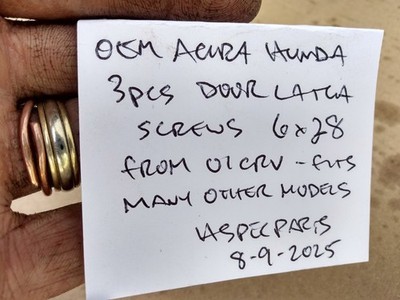 OEM ACURA HONDA
3pcs DOOR LATCH
SCREWS 6x28
FROM 01CRV - FITS
MANY OTHER MODELS
ASPECPARTS
8-9-2025